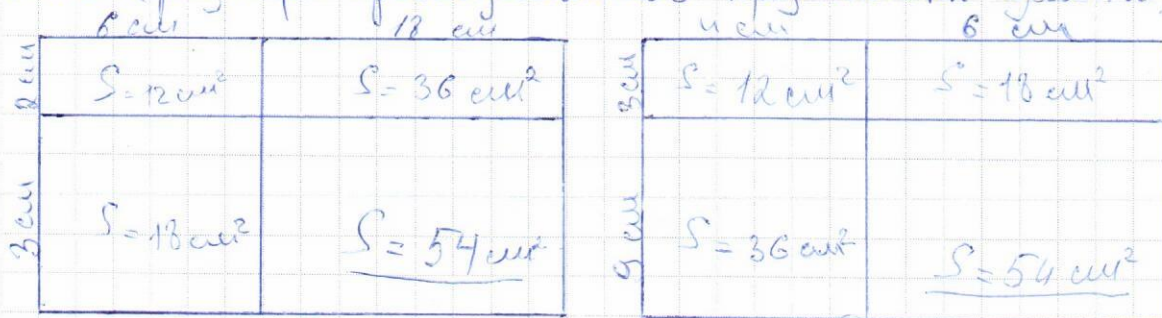 6 см 18 см 4 см 6 см
2 см S = 12 см² S = 36 см² 3 см S = 12 см² S = 18 см²
3 см S = 18 см² S = 54 см² 9 см S = 36 см² S = 54 см²